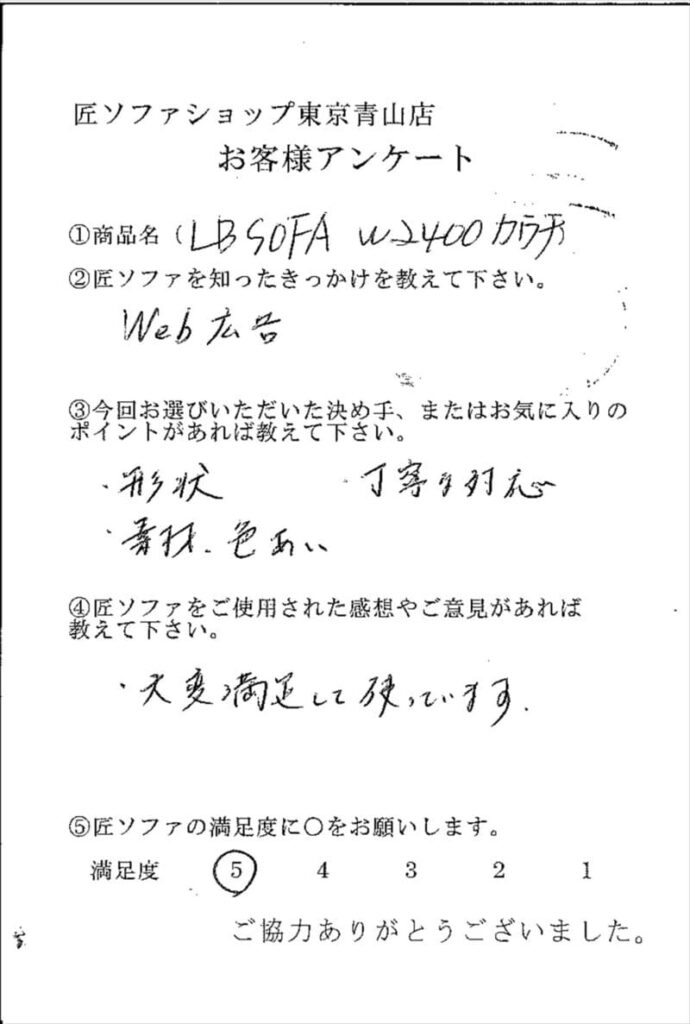 匠ソファショップ東京青山店
お客様アンケート
①商品名（LBSOFA W2400カウチ）
②匠ソファを知ったきっかけを教えて下さい。
Web広告
③今回お選びいただいた決め手、またはお気に入りの
ポイントがあれば教えて下さい。
・形状 ・丁寧な対応
・素材、色あい
④匠ソファをご使用された感想やご意見があれば
教えて下さい。
・大変満足して使っています.
⑤匠ソファの満足度に〇をお願いします。
満足度 5 4 3 2 1
ご協力ありがとうございました。